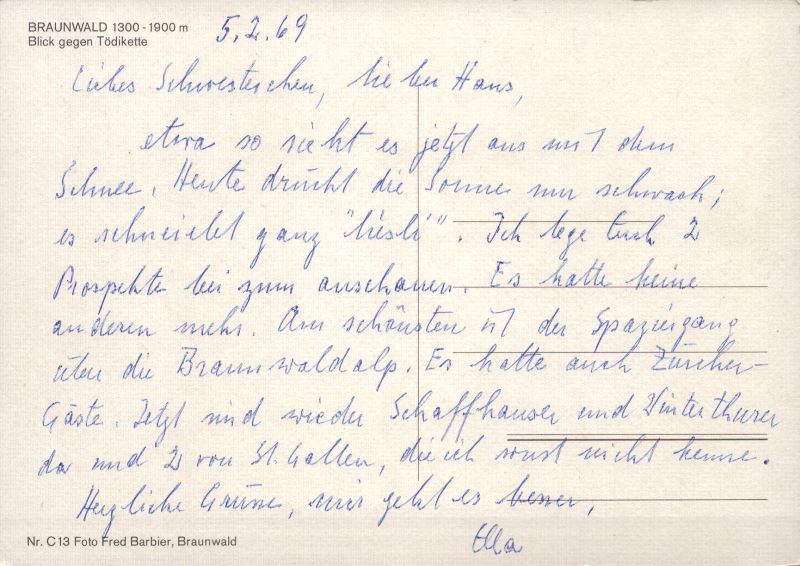 BRAUNWALD 1300 - 1900 m
Blick gegen Tödikette
5.2.69
Liebes Schwesterchen, lieber Hans,
etwa so sieht es jetzt aus mit dem
Schnee. Heute drückt die Sonne nur schwach;
es schneielet ganz "liesli". Ich lege Euch 2
Prospekte bei zum anschauen. Es hatte keine
anderen mehr. Am schönsten ist der Spaziergang
über die Braunwaldalp. Es hatte auch Zürcher-
Gäste. Jetzt sind wieder Schaffhauser und Winterthurer
da und 2 von St. Gallen, die ich sonst nicht kenne.
Herzliche Grüsse, mir geht es besser,
Ella
Nr. C13 Foto Fred Barbier, Braunwald